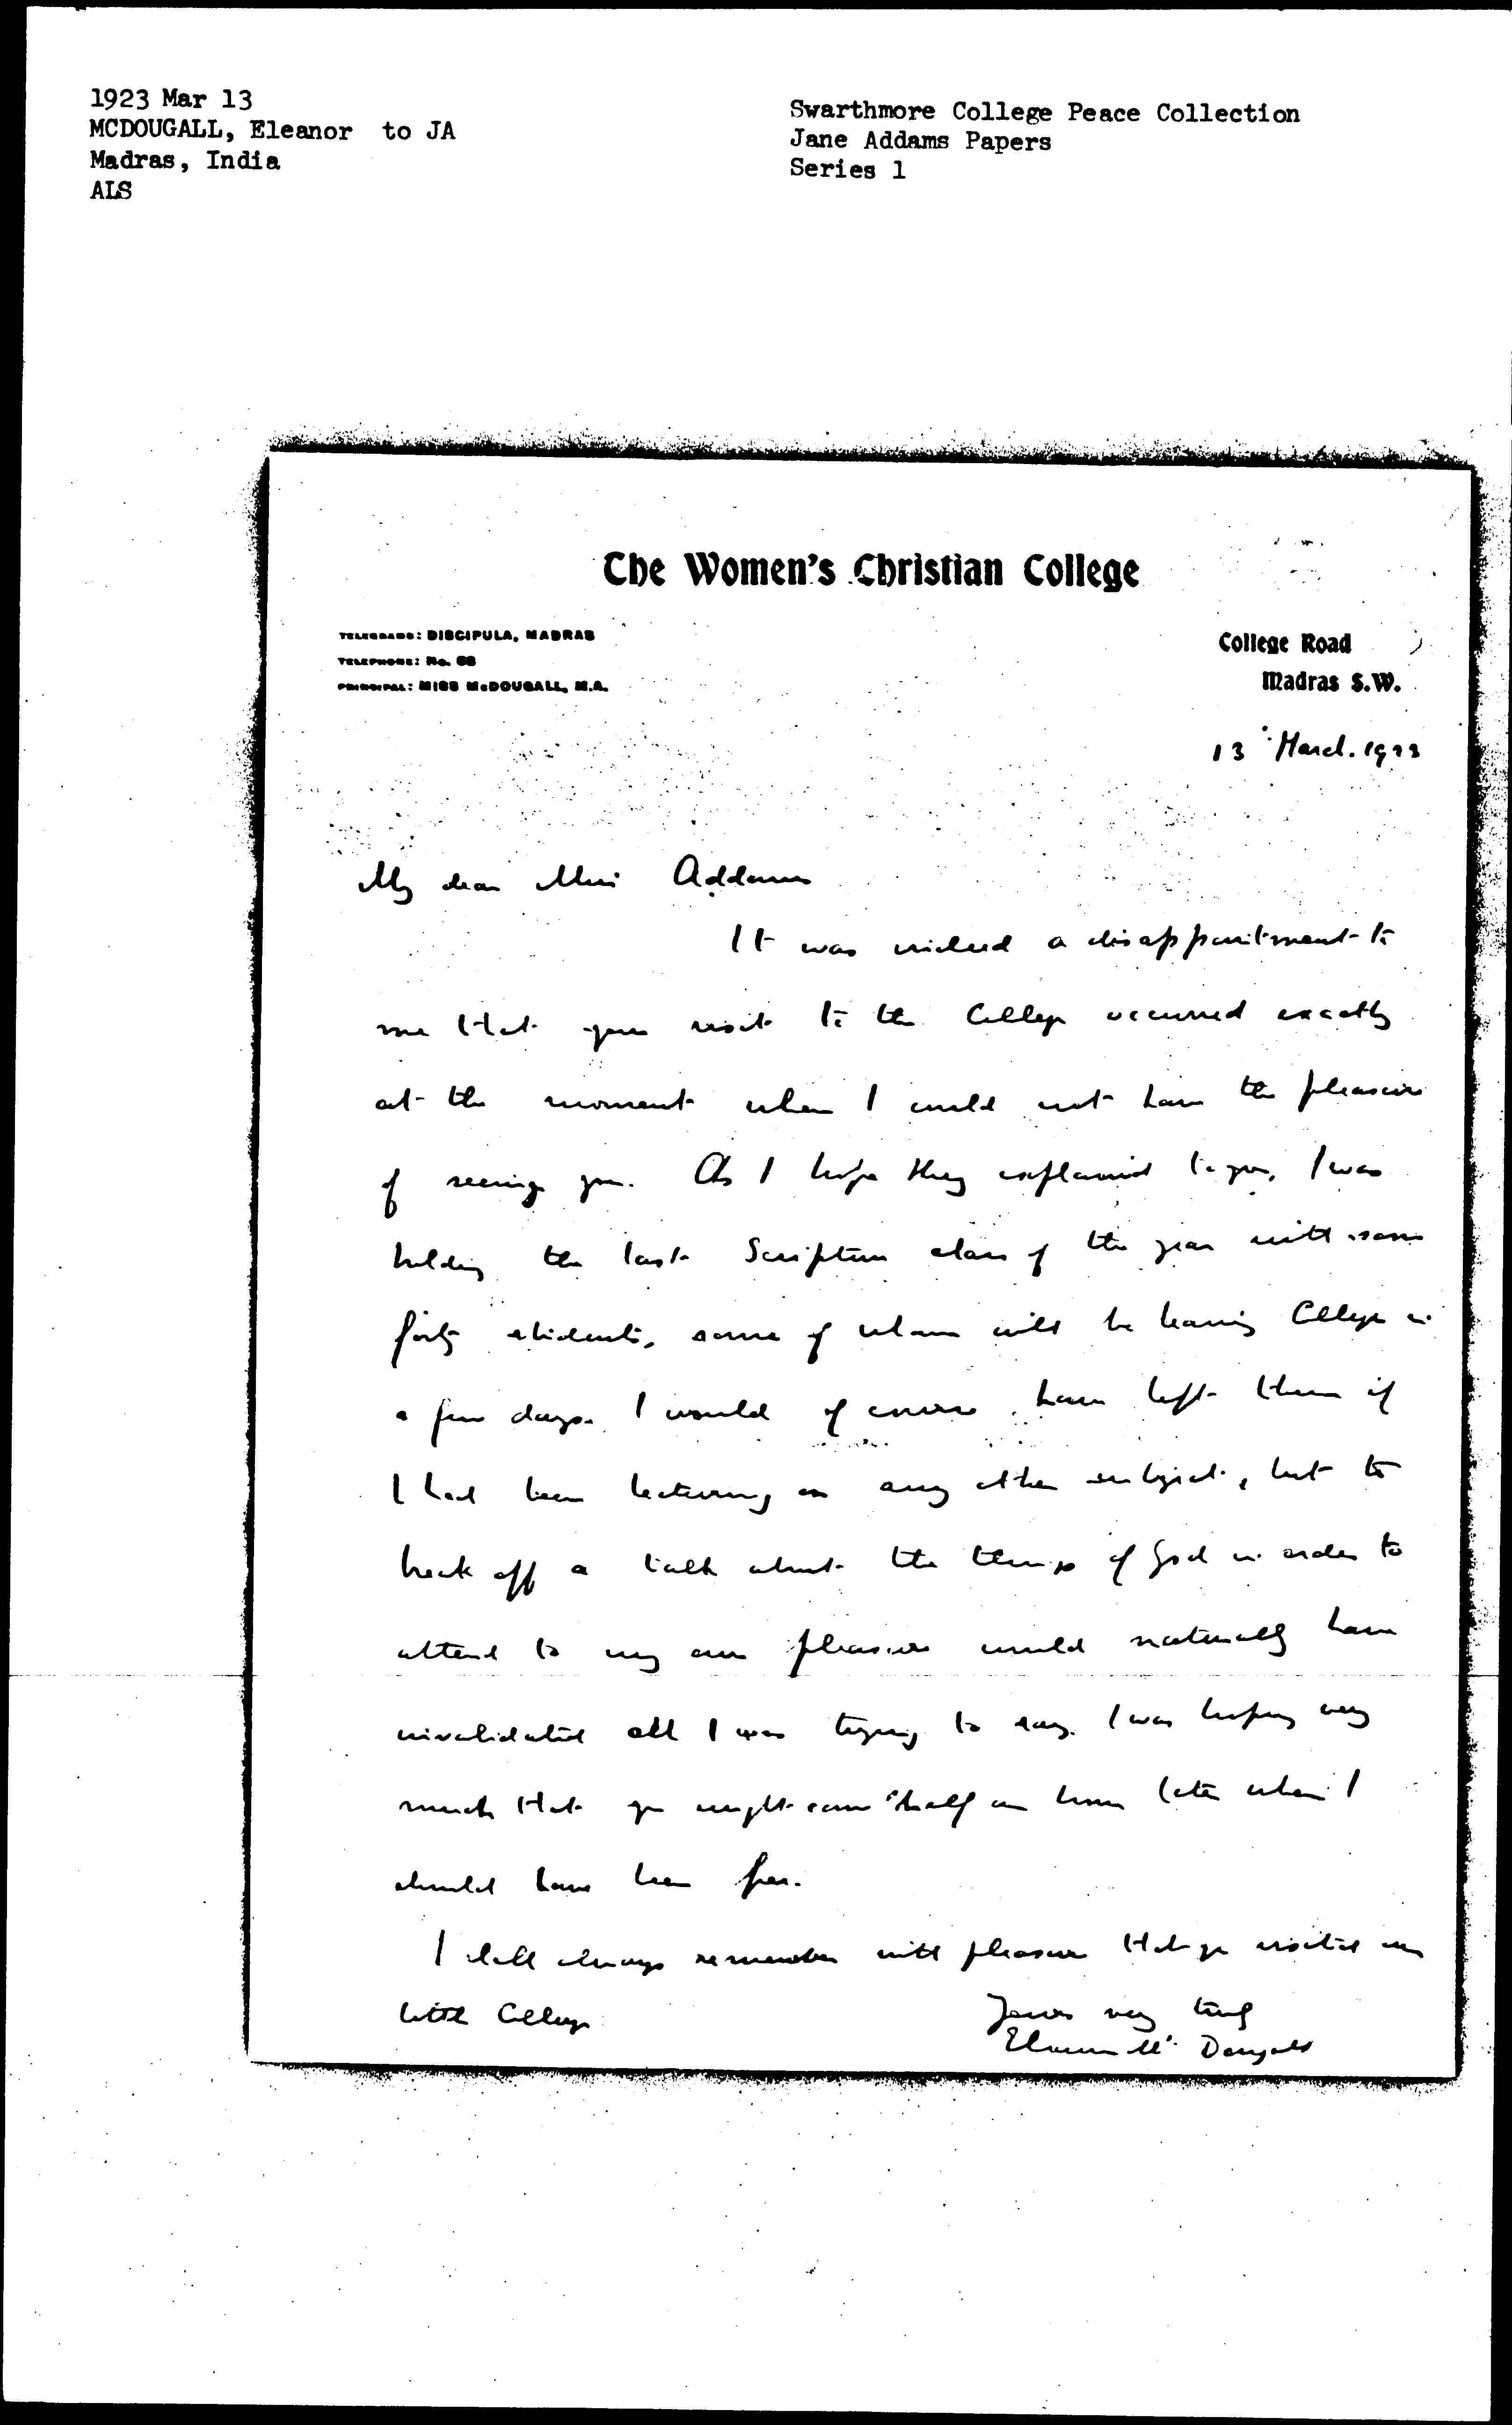 1923 Mar 13
MCDOUGALL, Eleanor to JA
Madras, India
ALS
Swarthmore College Peace Collection
Jane Addams Papers
Series 1
The Women's Christian College
TELEGRAMS: DISCIPULA, MADRAS
TELEPHONE: No. 68
PRINCIPAL: MISS McDOUGALL, M.A.
College Road
Madras S.W.
13 March. 1923
My dear Miss Addams
It was indeed a disappointment to
me that your visit to the College occurred exactly
at the moment when I could not have the pleasure
of seeing you. As I hope they explained to you, I was
holding the last Scripture class of the year with some
forty students, some of whom will be leaving College in
a few days. I would of course have left them if
I had been lecturing on any other subject, but to
break off a talk about the things of God in order to
attend to my own pleasure would naturally have
invalidated all I was trying to say. I was hoping very
much that you might come half an hour later when I
should have been free.
I shall always remember with pleasure that you visited our
little College
Yours very truly
Eleanor McDougall